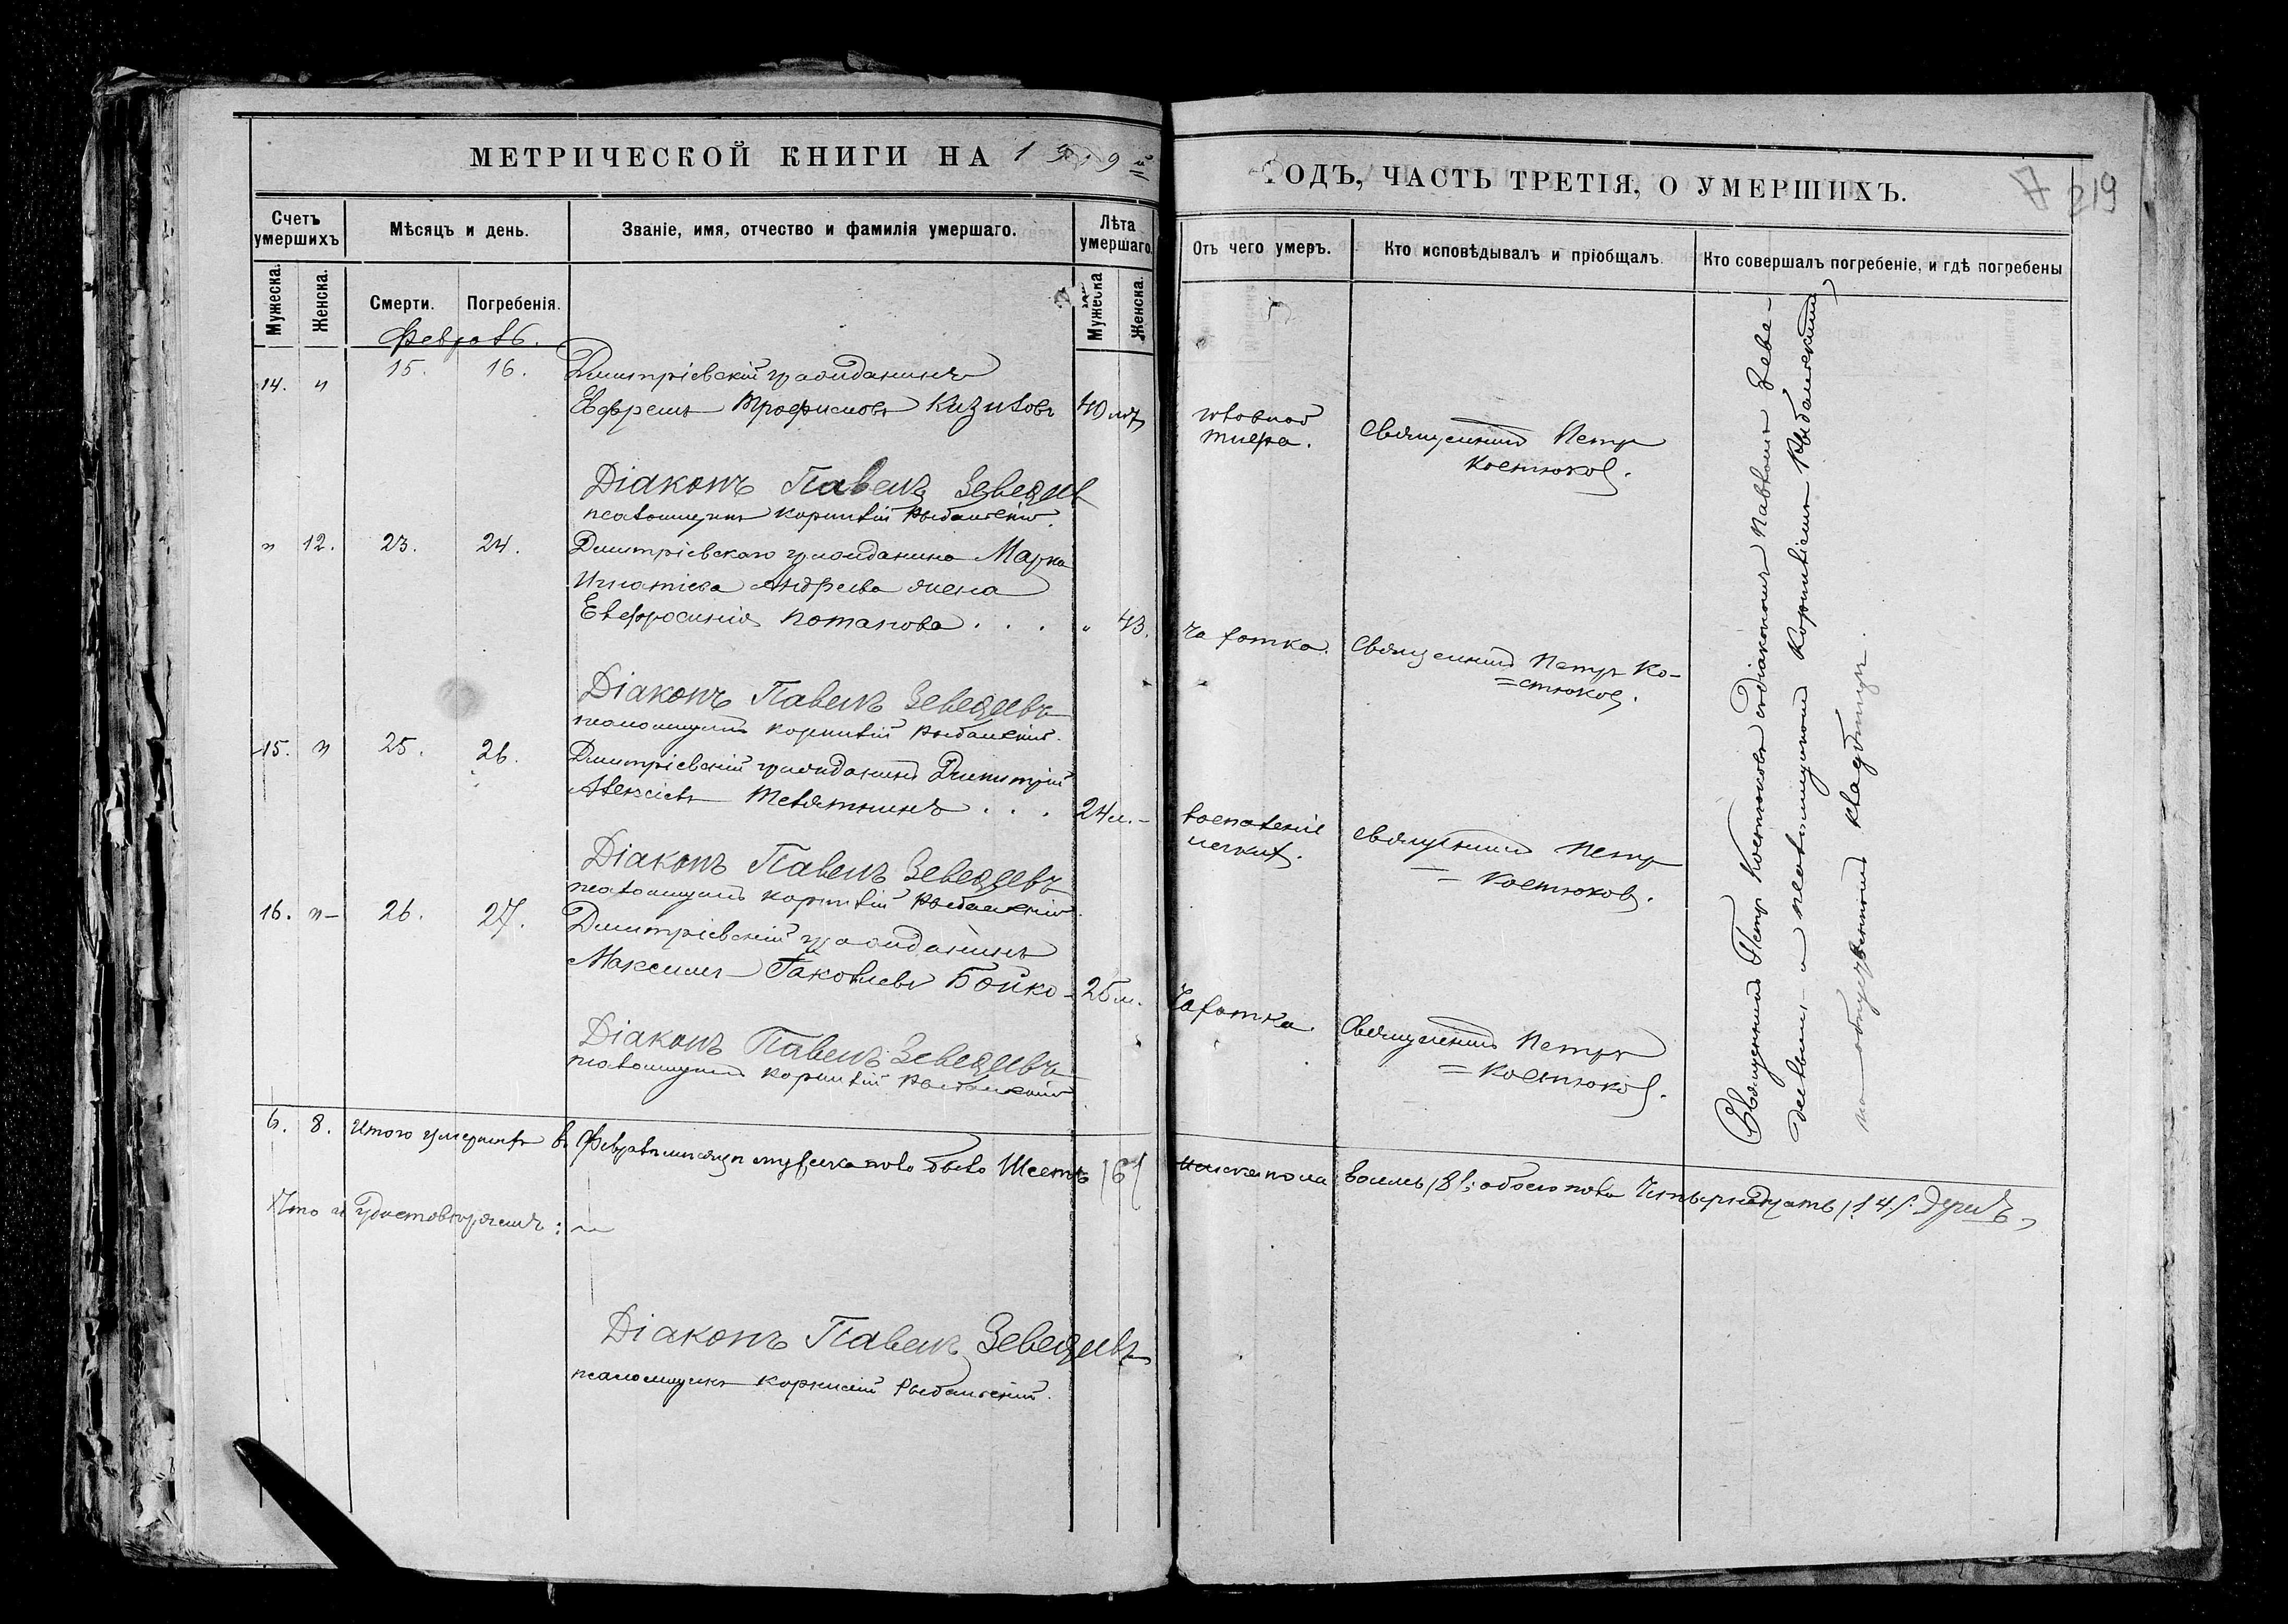 МЕТРИЧЕСКОЙ КНИГИ НА 1919й
ГОДЪ, ЧАСТЬ ТРЕТІЯ, О УМЕРШИХЪ.
219
Счетъ умершихъ
Мужеска.
Женска.
Мѣсяцъ и день.
Смерти.
Погребенія.
Званіе, имя, отчество и фамилія умершаго.
Лѣта умершаго.
Мужеска
Женска.
Отъ чего умеръ.
Кто исповѣдывалъ и пріобщалъ.
Кто совершалъ погребеніе, и гдѣ погребены
14. " 15. 16. Дмитріевскій гражданинъ
Ефремъ Трофимовъ 40 лѣтъ
Священникъ Петръ
Костюковъ.
Діаконъ Павелъ Зеведеевъ
псаломщикъ Корнилій Рыбальскій.
" 12. 23. 24. Дмитріевскаго гражданина Марка
Игнатіева Андреева жена
Евфросинія Потапова . . . " 43.
Чахотка.
Священникъ Петръ Ко-
=стюковъ.
Діаконъ Павелъ Зеведеевъ
псаломщикъ Корнилій Рыбальскій.
15. " 25. 26. Дмитріевскій гражданинъ Димитрій
Алексіевъ . . . 24 л. -
воспаленіе
легкихъ.
Священникъ Петръ
= Костюковъ.
Діаконъ Павелъ Зеведеевъ
псаломщикъ Корнилій Рыбальскій.
16. " - 26. 27. Дмитріевскій гражданинъ
Максимъ Іаковлевъ Бойко - 25 л.
Чахотка.
Священникъ Петръ
= Костюковъ.
Діаконъ Павелъ Зеведеевъ
псаломщикъ Корнилій Рыбальскій
Священникъ Петръ Костюковъ съ діакономъ Павломъ Зеве-
деевымъ и псаломщикомъ Корниліемъ Рыбальскимъ
на кладбищѣ.
6. 8. Итого умершихъ въ Февралѣ мѣсяцѣ мужеска пола было Шесть /6/
женска пола восемь /8/; обоего пола Четырнадцать /14/.
Что и удостовѣряемъ:
Діаконъ Павелъ Зеведеевъ
псаломщикъ Корнилій Рыбальскій.